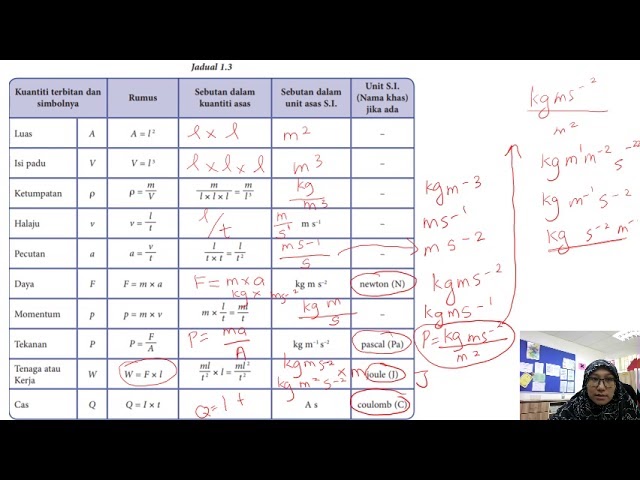 Jadual 1.3
Kuantiti terbitan dan simbolnya Rumus Sebutan dalam kuantiti asas Sebutan dalam unit asas S.I. Unit S.I. (Nama khas) jika ada
Luas A A = l² l × l m² –
Isi padu V V = l³ l × l × l m³ –
Ketumpatan ρ ρ = m/V m/(l × l × l) = m/l³ kg/m³ –
Halaju v v = l/t l/t m/s¹ m s⁻¹ –
Pecutan a a = v/t l/(t × t) = l/t² ms⁻¹/s –
Daya F F = m × a F = m × a kg × ms⁻² kg m s⁻² newton (N)
Momentum p p = m × v m × l/t = ml/t kg m/s –
Tekanan P P = F/A P = ma/A kg m⁻¹ s⁻² pascal (Pa)
Tenaga atau Kerja W W = F × l ml/t² × l = ml²/t² kgms⁻² × m kg m² s⁻² joule (J) J
Cas Q Q = I × t Q = I t A s coulomb (C)
kgm⁻³
ms⁻¹
m s⁻²
kgms⁻²
kgms⁻¹
P = kgms⁻²/m²
kgms⁻²/m²
kg m¹m⁻² s⁻²
kg m⁻¹ s⁻²
kg s⁻² m⁻